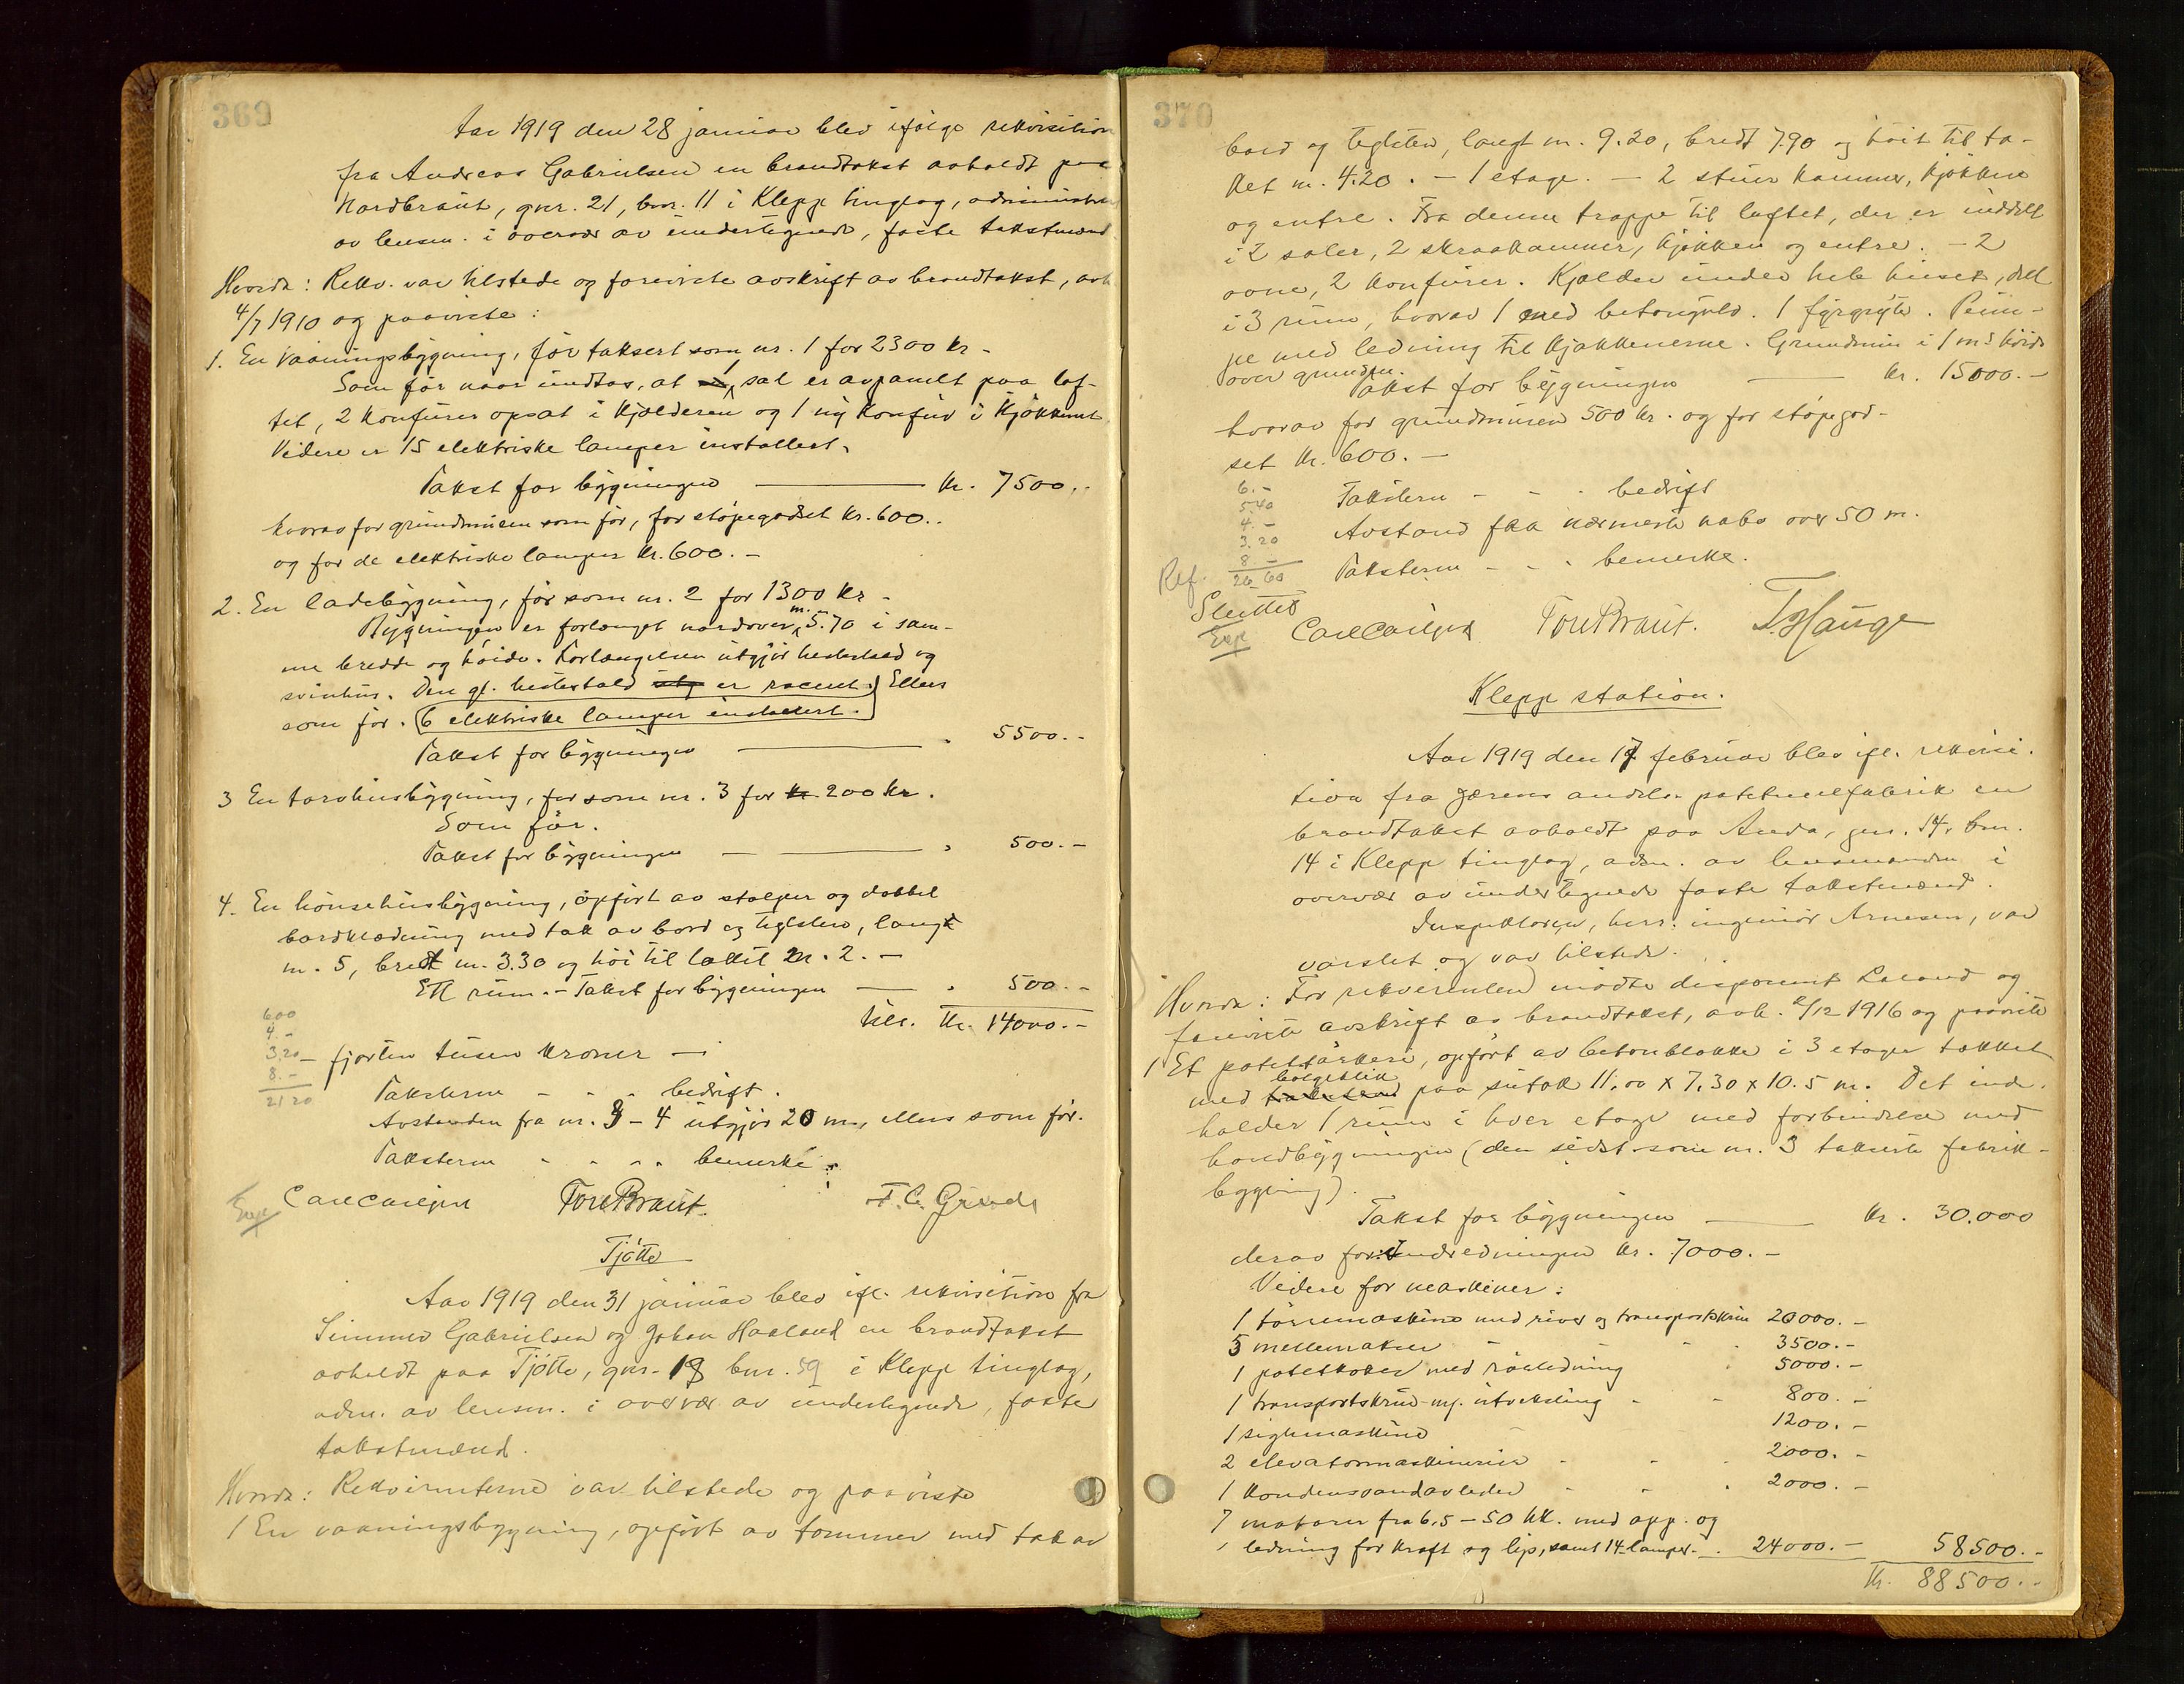 369
Aar 1919 den 28 januar blev ifølge rekvisition
fra Andreas Gabrielsen en brandtakst avholdt paa
Nordbraut, gnr. 21, bnr. 11 i Klepp tinglag, administrer
av lensm. i overvær av undertegnede, faste takstmænd
Hvorda: Rekv. var tilstede og foreviste avskrift av brandtakst, avh
4/7 1910 og paaviste:
1. En vaaningsbygning, før taksert som nr. 1 for 2300 kr -
Som før naar undtas, at 1 sal er avpanelt paa lof-
tet, 2 komfurer opsat i kjælderen og 1 ny komfur i kjøkkenet
Videre er 15 elektriske lamper installert.
Takst for bygningen — kr. 7500.-
hvorav for grundmuren som før, for støpegodset kr. 600..
og for de elektriske lamper kr. 600. -
2. En ladebygning, før som nr. 2 for 1300 kr -
Bygningen er forlænget nordover m. 5.70 i sam-
me bredde og høide. Forlængelsen utgjør hestestald og
svinhus. Den gl. hestestald er raceret.) Ellers
som før. (6 elektriske lamper installert.)
Takst for bygningen — " 5500.-
3 En torvhusbygning, før som nr. 3 for 200 kr.
Som før.
Takst for bygningen — " 500.-
4. En hønsehusbygning, opført av stolper og dobbel
bordklædning med tak av bord og teglsten, langt
m. 5, bredt m. 3.30 og høi til taket m. 2. -
Ett rum. - Takst for bygningen — " 500.-
Tils. kr. 14000.-
6.00
4. -
3.20
8. -
21 20
- fjorten tusen kroner -
Taksterne - - - bedrift.
Avstanden fra nr. 3 - 4 utgjør 20 m., ellers som før.
Taksterne - - - bemerke.
Exp
Carl Carlsen Tore Braut. T. C. Grude
Tjøtta
Aar 1919 den 31 januar blev ifl. rekvisition fra
Simmer Gabrielsen og Johan Haaland en brandtakst
avholdt paa Tjøtta, gnr. 18 bnr. 59 i Klepp tinglag,
adm. av lensm. i overvær av undertegnede, faste
takstmænd.
Hvorda: Rekvirenterne var tilstede og paaviste
1 En vaaningsbygning, opført av tømmer med tak av
370
bord og teglsten, langt m. 9.20, bredt 7.90 og høit til ta-
ket m. 4.20. - 1 etage. - 2 stuer kammer, kjøkken
og entre. Fra denne trappe til loftet, der er inddelt
i 2 saler, 2 skraakammer, kjøkken og entre. - 2
ovne, 2 komfurer. Kjælder under hele huset, delt
i 3 rum, hvorav 1 med betongulv. 1 fyrgryte. Pum-
pe med ledning til kjøkkenerne. Grundmur i 1 m's høide
over grunden.
Takst for bygningen — kr. 15000.-
hvorav for grundmuren 500 kr. og for støpegod-
set kr. 600. -
6. -
5.40
4. -
3.20
8 -
26 60
Taksterne - - - bedrift
Avstand fra nærmeste nabo over 50 m.
Taksterne - - - bemerke.
Ref.
Sluttet
Exp
Carl Carlsen Tore Braut. T. Hauge
Klepp station.
Aar 1919 den 17 februar blev ifl. rekvisi-
tion fra Jærens andels potetmelfabrik en
brandtakst avholdt paa Anda, gnr. 14, bnr.
14 i Klepp tinglag, adm. av lensmanden i
overvær av undertegnede faste takstmænd.
Inspektøren, herr. ingeniør Arnesen, var
varslet og var tilstede.
Hvorda: For rekvirenten møtte disponent Laland og
foreviste avskrift av brandtakst, avh. 2/12 1916 og paaviste
1 Et potettørkeri, opført av betonblokke i 3 etager tækket
med bølgeblik paa sutak 11.00 x 7.30 x 10.5 m. Det inde-
holder 1 rum i hver etage med forbindelse med
hovedbygningen (den sidst som nr. 3 takserte fabrik-
bygning).
Takst for bygningen — kr. 30.000
derav for indredningen kr. 7000. -
Videre for maskiner:
1 tørremaskine med river og transportskrue 20000. -
5 mellemakser - - 3500. -
1 potetkoker med rørledning 5000. -
1 transportskrue m/. utveksling - - 800. -
1 sigtemaskine 1200. -
2 elevatormaskinerier - - 2000. -
1 kondensvandavleder - - 2000. -
7 motorer fra 6,5 - 50 hk. med app. og
ledning for kraft og lys, samt 14 lamper. 24000. - 58500. -
Kr. 88500. -